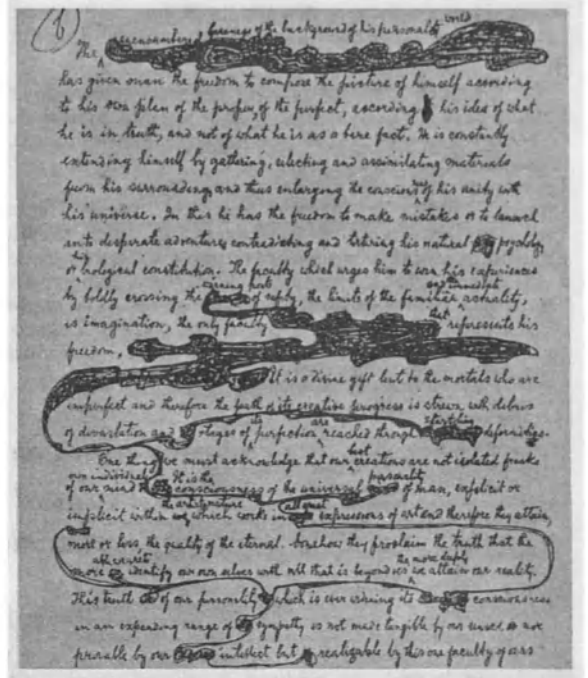 6
The vagueness of the background of his personality world
has given man the freedom to compose the picture of himself according
to his own plan of the proper, of the perfect, according his idea of what
he is in truth, and not of what he is as a bare fact. He is constantly
extending himself by gathering, selecting and assimilating materials
from his surroundings and thus enlarging the conscious of his unity with
his universe. In this he has the freedom to make mistakes or to launch
into desperate adventures contradicting and his natural psychology
or biological constitution. The faculty which urges him to his experiences
by boldly crossing the of, the limits of the familiar and immediate actuality,
is imagination, the only faculty that represents his
freedom.
It is a divine gift lent to the mortals who are
imperfect and therefore the path of its creative progress is strewn with debris
of devastation and stages of its perfection are reached through startling deformities.
One thing we must acknowledge that our creations are not isolated freaks
our individual
of our mind. It is the consciousness of the universal personality of man, explicit or
implicit within us, which works in all great expressions of art and therefore they attain,
more or less, the quality of the eternal. Somehow they proclaim the truth that the
more identify our own selves with all that is beyond us the more deeply we attain our reality.
This truth of our personality which is ever widening its consciousness
in an expanding range of sympathy is not made tangible by our senses or
provable by our intellect but realizable by this one faculty of ours